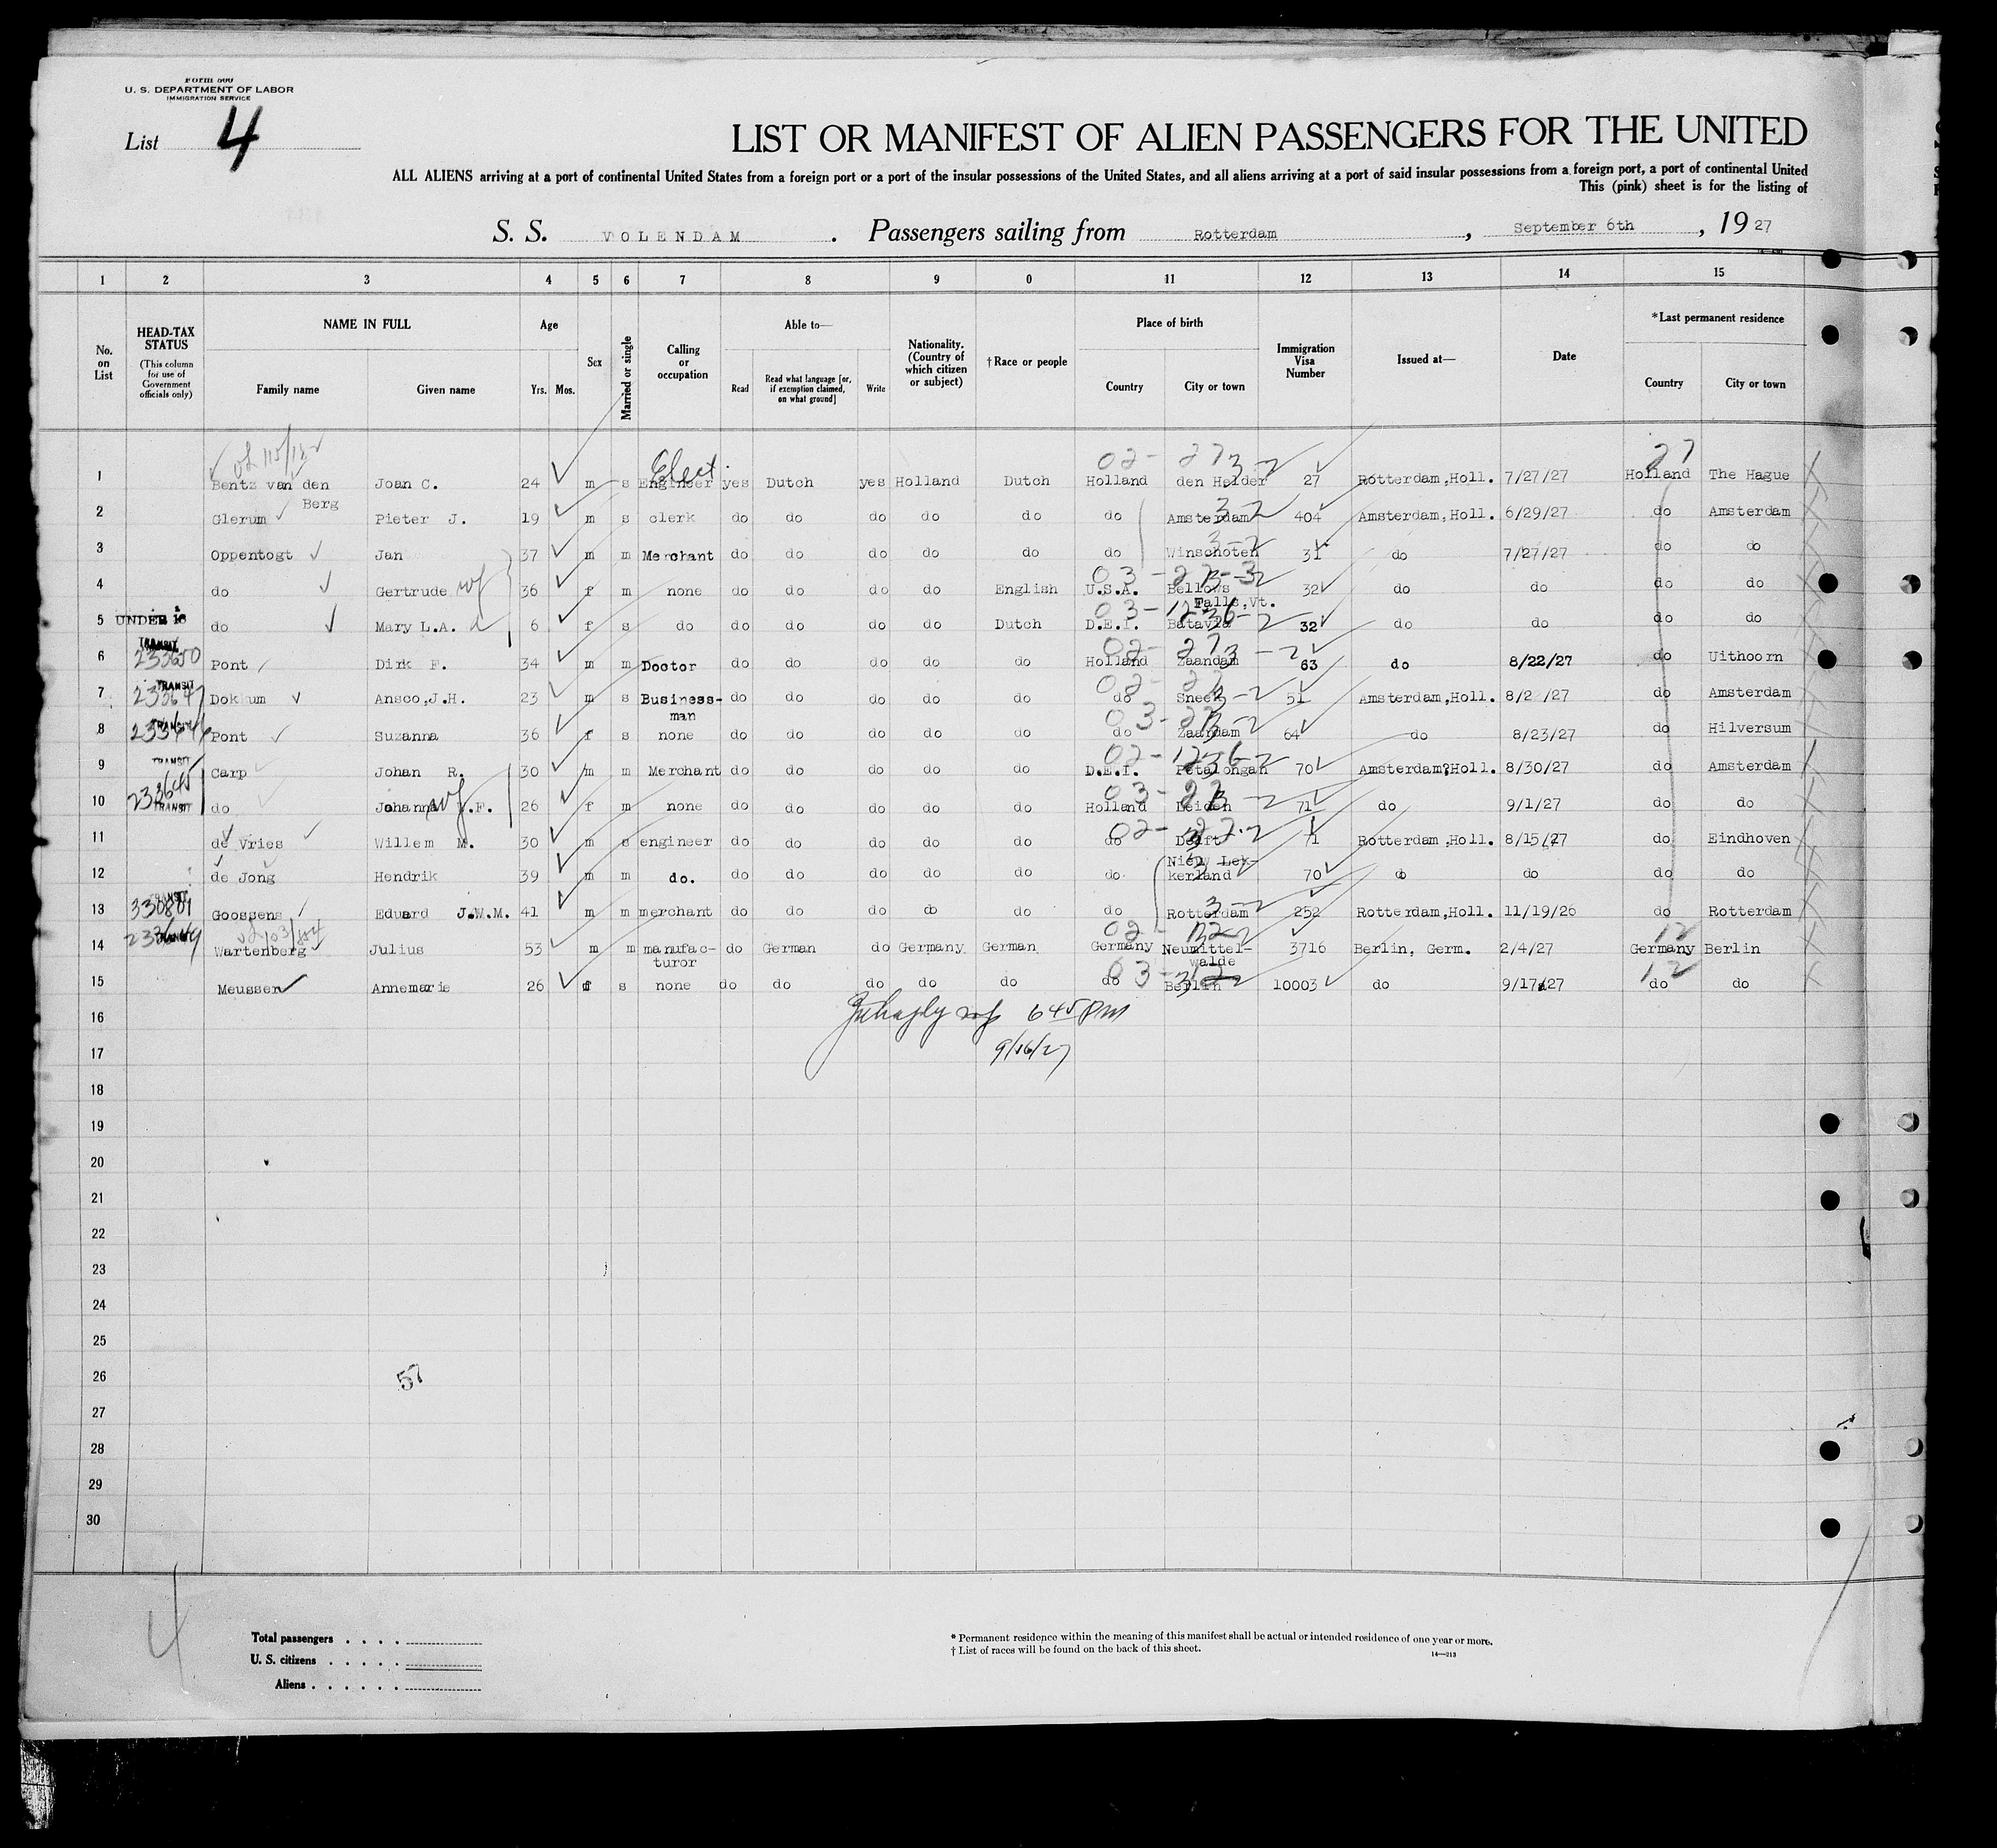 Form 500
U. S. DEPARTMENT OF LABOR
IMMIGRATION SERVICE
List 4
LIST OR MANIFEST OF ALIEN PASSENGERS FOR THE UNITED
ALL ALIENS arriving at a port of continental United States from a foreign port or a port of the insular possessions of the United States, and all aliens arriving at a port of said insular possessions from a foreign port, a port of continental United
This (pink) sheet is for the listing of
S. S. VOLENDAM . Passengers sailing from Rotterdam , September 6th , 19 27
1 2 3 4 5 6 7 8 9 0 11 12 13 14 15
No. on List
HEAD-TAX STATUS (This column for use of Government officials only)
NAME IN FULL Family name Given name
Age Yrs. Mos.
Sex
Married or single
Calling or occupation
Able to— Read Read what language [or, if exemption claimed, on what ground] Write
Nationality. (Country of which citizen or subject)
†Race or people
Place of birth Country City or town
Immigration Visa Number
Issued at—
Date
*Last permanent residence Country City or town
1 Bentz van den Berg Joan C. 24 m s Elect. Engineer yes Dutch yes Holland Dutch Holland den Helder 27 Rotterdam,Holl. 7/27/27 Holland The Hague
2 Glerum Pieter J. 19 m s clerk do do do do do do Amsterdam 404 Amsterdam,Holl. 6/29/27 do Amsterdam
3 Oppentogt Jan 37 m m Merchant do do do do do do Winschoten 31 do 7/27/27 do do
4 do Gertrude wf 36 f m none do do do do English U.S.A. Bellows Falls,Vt. 32 do do do do
5 UNDER 16 do Mary L.A. d 6 f s do do do do do Dutch D.E.I. Batavia 32 do do do do
6 TRANSIT 233650 Pont Dirk F. 34 m m Doctor do do do do do Holland Zaandam 63 do 8/22/27 do Uithoorn
7 TRANSIT 233647 Dokkum Ansco,J.H. 23 m s Business-man do do do do do do Sneek 51 Amsterdam,Holl. 8/2 /27 do Amsterdam
8 TRANSIT 233646 Pont Suzanna 36 f s none do do do do do do Zaandam 64 do 8/23/27 do Hilversum
9 TRANSIT Carp Johan R. 30 m m Merchant do do do do do D.E.I. Petalongan 70 Amsterdam?Holl. 8/30/27 do Amsterdam
10 233645 TRANSIT do Johanna wf .F. 26 f m none do do do do do Holland Leiden 71 do 9/1/27 do do
11 de Vries Willem M. 30 m s engineer do do do do do do Delft 71 Rotterdam,Holl. 8/15/27 do Eindhoven
12 de Jong Hendrik 39 m m do. do do do do do do Nieuw Lek-kerland 70 do do do do
13 TRANSIT Goossens Eduard J.M.M. 41 m m merchant do do do do do do Rotterdam 252 Rotterdam,Holl. 11/19/26 do Rotterdam
14 TRANSIT Wartenberg Julius 53 m m manufac-turor do German do Germany German Germany Neumittel-walde 3716 Berlin, Germ. 2/4/27 Germany Berlin
15 Meusser Annemarie 26 f s none do do do do do do Berlin 10003 do 9/17/27 do do
16 645 PM
17 9/16/27
18
19
20
21
22
23
24
25
26 57
27
28
29
30
4
Total passengers . . . .
U. S. citizens . . . . .
Aliens . . . . . .
* Permanent residence within the meaning of this manifest shall be actual or intended residence of one year or more.
† List of races will be found on the back of this sheet.
14—213